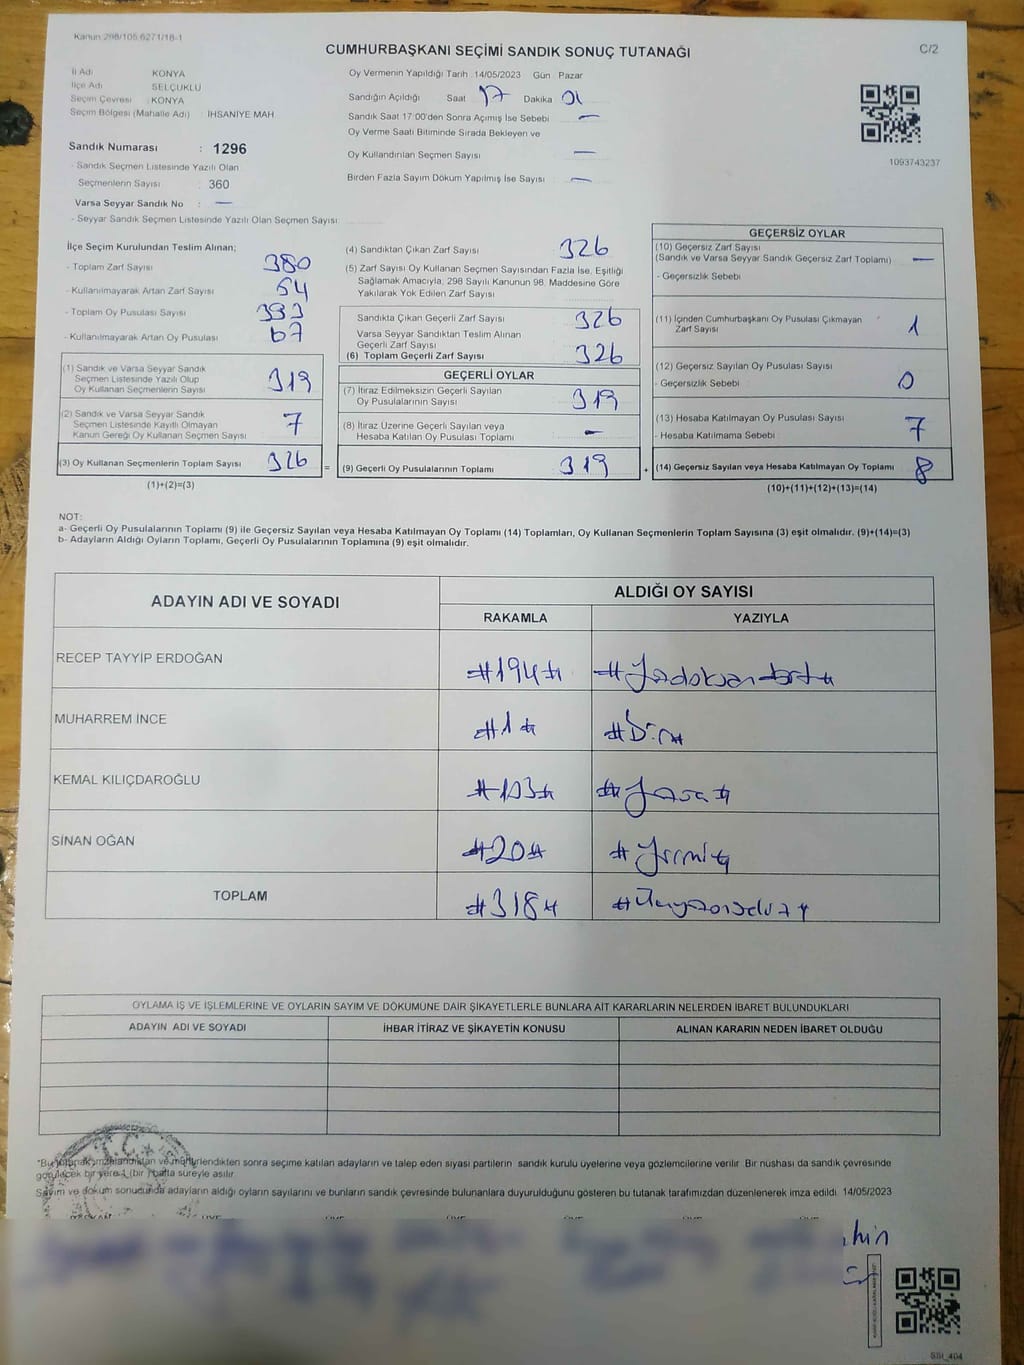 Kanun 298/105 6271/18-1
CUMHURBAŞKANI SEÇİMİ SANDIK SONUÇ TUTANAĞI
C/2
İl Adı KONYA
İlçe Adı SELÇUKLU
Seçim Çevresi : KONYA
Seçim Bölgesi (Mahalle Adı) : İHSANİYE MAH
Sandık Numarası : 1296
- Sandık Seçmen Listesinde Yazılı Olan
Seçmenlerin Sayısı : 360
Varsa Seyyar Sandık No : —
- Seyyar Sandık Seçmen Listesinde Yazılı Olan Seçmen Sayısı:
Oy Vermenin Yapıldığı Tarih :14/05/2023 Gün Pazar
Sandığın Açıldığı Saat 17 Dakika 01
Sandık Saat 17:00'den Sonra Açımış İse Sebebi —
Oy Verme Saati Bitiminde Sırada Bekleyen ve
Oy Kullandırılan Seçmen Sayısı —
Birden Fazla Sayım Döküm Yapılmış İse Sayısı —
1093743237
İlçe Seçim Kurulundan Teslim Alınan;
- Toplam Zarf Sayısı 380
- Kullanılmayarak Artan Zarf Sayısı 54
- Toplam Oy Pusulası Sayısı 393
- Kullanılmayarak Artan Oy Pusulası 67
(1) Sandık ve Varsa Seyyar Sandık
Seçmen Listesinde Yazılı Olup
Oy Kullanan Seçmenlerin Sayısı 319
(2) Sandık ve Varsa Seyyar Sandık
Seçmen Listesinde Kayıtlı Olmayan
Kanun Gereği Oy Kullanan Seçmen Sayısı 7
(3) Oy Kullanan Seçmenlerin Toplam Sayısı 326
(1)+(2)=(3)
(4) Sandıktan Çıkan Zarf Sayısı 326
(5) Zarf Sayısı Oy Kullanan Seçmen Sayısından Fazla İse, Eşitliği
Sağlamak Amacıyla, 298 Sayılı Kanunun 98. Maddesine Göre
Yakılarak Yok Edilen Zarf Sayısı
Sandıkta Çıkan Geçerli Zarf Sayısı 326
Varsa Seyyar Sandıktan Teslim Alınan
Geçerli Zarf Sayısı
(6) Toplam Geçerli Zarf Sayısı 326
GEÇERLİ OYLAR
(7) İtiraz Edilmeksizin Geçerli Sayılan
Oy Pusulalarının Sayısı 319
(8) İtiraz Üzerine Geçerli Sayılan veya
Hesaba Katılan Oy Pusulası Toplamı —
= (9) Geçerli Oy Pusulalarının Toplamı 319
GEÇERSİZ OYLAR
(10) Geçersiz Zarf Sayısı
(Sandık ve Varsa Seyyar Sandık Geçersiz Zarf Toplamı) —
- Geçersizlik Sebebi
(11) İçinden Cumhurbaşkanı Oy Pusulası Çıkmayan
Zarf Sayısı 1
(12) Geçersiz Sayılan Oy Pusulası Sayısı
- Geçersizlik Sebebi 0
(13) Hesaba Katılmayan Oy Pusulası Sayısı 7
- Hesaba Katılmama Sebebi
+ (14) Geçersiz Sayılan veya Hesaba Katılmayan Oy Toplamı 8
(10)+(11)+(12)+(13)=(14)
NOT:
a- Geçerli Oy Pusulalarının Toplamı (9) ile Geçersiz Sayılan veya Hesaba Katılmayan Oy Toplamı (14) Toplamları, Oy Kullanan Seçmenlerin Toplam Sayısına (3) eşit olmalıdır. (9)+(14)=(3)
b- Adayların Aldığı Oyların Toplamı, Geçerli Oy Pusulalarının Toplamına (9) eşit olmalıdır.
ADAYIN ADI VE SOYADI ALDIĞI OY SAYISI
RAKAMLA YAZIYLA
RECEP TAYYİP ERDOĞAN #194#
MUHARREM İNCE #1# #Bir#
KEMAL KILIÇDAROĞLU #103#
SİNAN OĞAN #20# #Yirmi#
TOPLAM #318#
OYLAMA İŞ VE İŞLEMLERİNE VE OYLARIN SAYIM VE DÖKÜMÜNE DAİR ŞİKAYETLERLE BUNLARA AİT KARARLARIN NELERDEN İBARET BULUNDUKLARI
ADAYIN ADI VE SOYADI İHBAR İTİRAZ VE ŞİKAYETİN KONUSU ALINAN KARARIN NEDEN İBARET OLDUĞU
T.C.
*Bu tutanak imzalandıktan ve mühürlendikten sonra seçime katılan adayların ve talep eden siyasi partilerin sandık kurulu üyelerine veya gözlemcilerine verilir. Bir nüshası da sandık çevresinde
görülecek bir yere 1 (bir) hafta süreyle asılır.
Sayım ve döküm sonucunda adayların aldığı oyların sayılarını ve bunların sandık çevresinde bulunanlara duyurulduğunu gösteren bu tutanak tarafımızdan düzenlenerek imza edildi. 14/05/2023